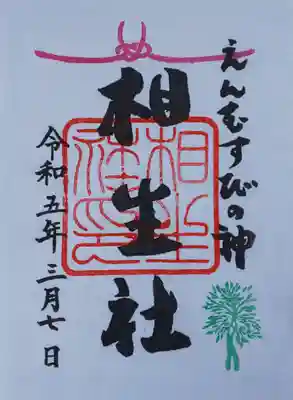 えんむすびの神
相生社
令和五年 三月七日
相生社印